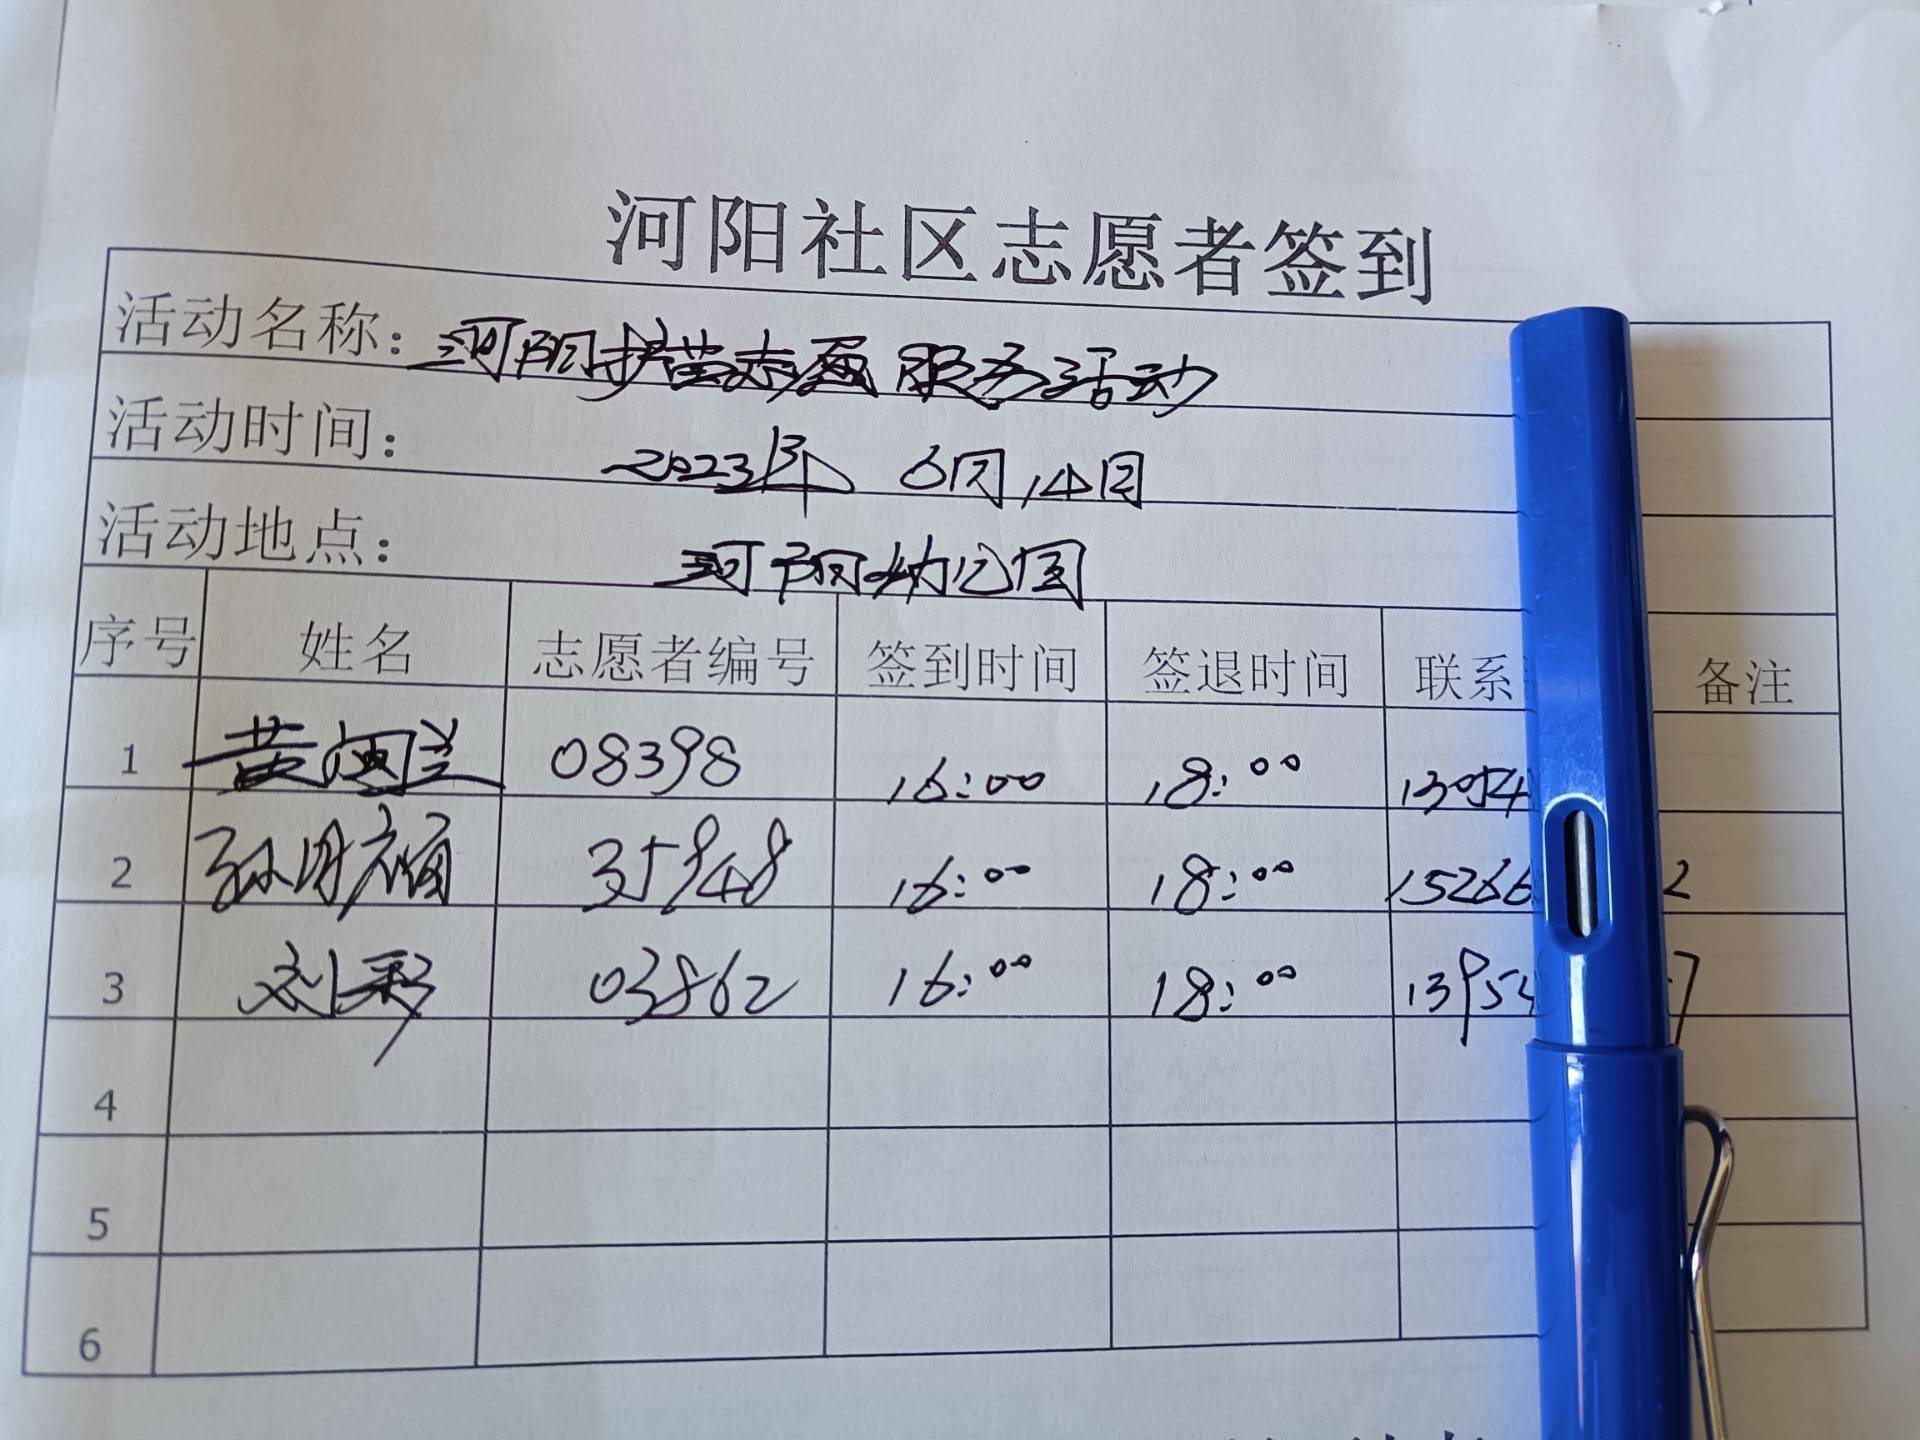 河阳社区志愿者签到
活动名称：河阳护苗志愿服务活动
活动时间：2023年 6月14日
活动地点：河阳幼儿园
序号 姓名 志愿者编号 签到时间 签退时间 联系 备注
1 黄 兰 08398 16:00 18:00 13054
2 孙 35948 16:00 18:00 15266 2
3 刘彩 03862 16:00 18:00 13954 7
4
5
6